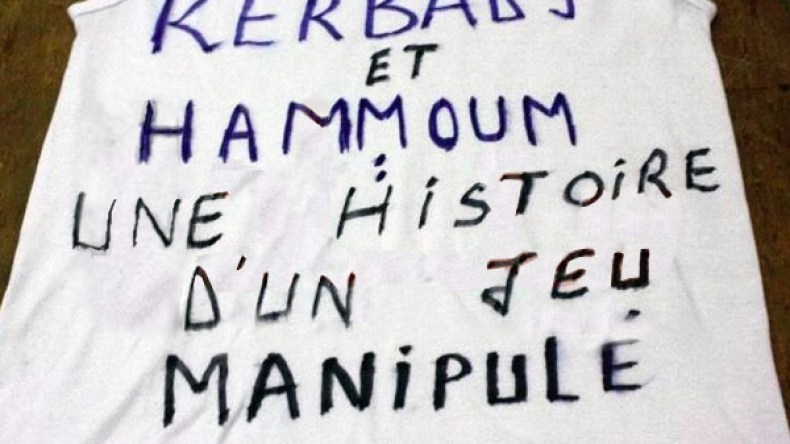 KERBADJ
ET
HAMMOUM
:
UNE HiSTOiRE
D'UN JEU
MANiPULÉ